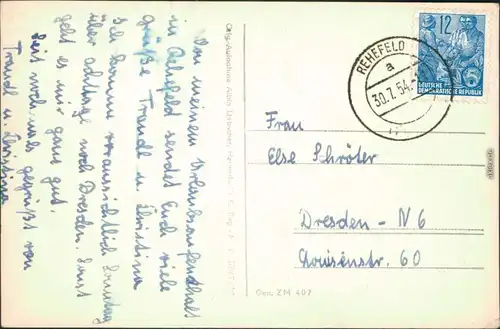 Von meinem Urlaubsaufenthalt
in Rehefeld sendet Euch viele
Grüße Traudl u. Christina
Ich komme voraussichtlich Sonntag
über achttage nach Dresden. Sonst
geht es mir ganz gut.
Seit noch mals gegrüßt von
Traudl u. Christina
REHEFELD
a
30.7.54
12
DEUTSCHE
DEMOKRATISCHE REPUBLIK
Frau
Else Schröter
Dresden - N 6
Louisenstr. 60
Gen. ZM 407